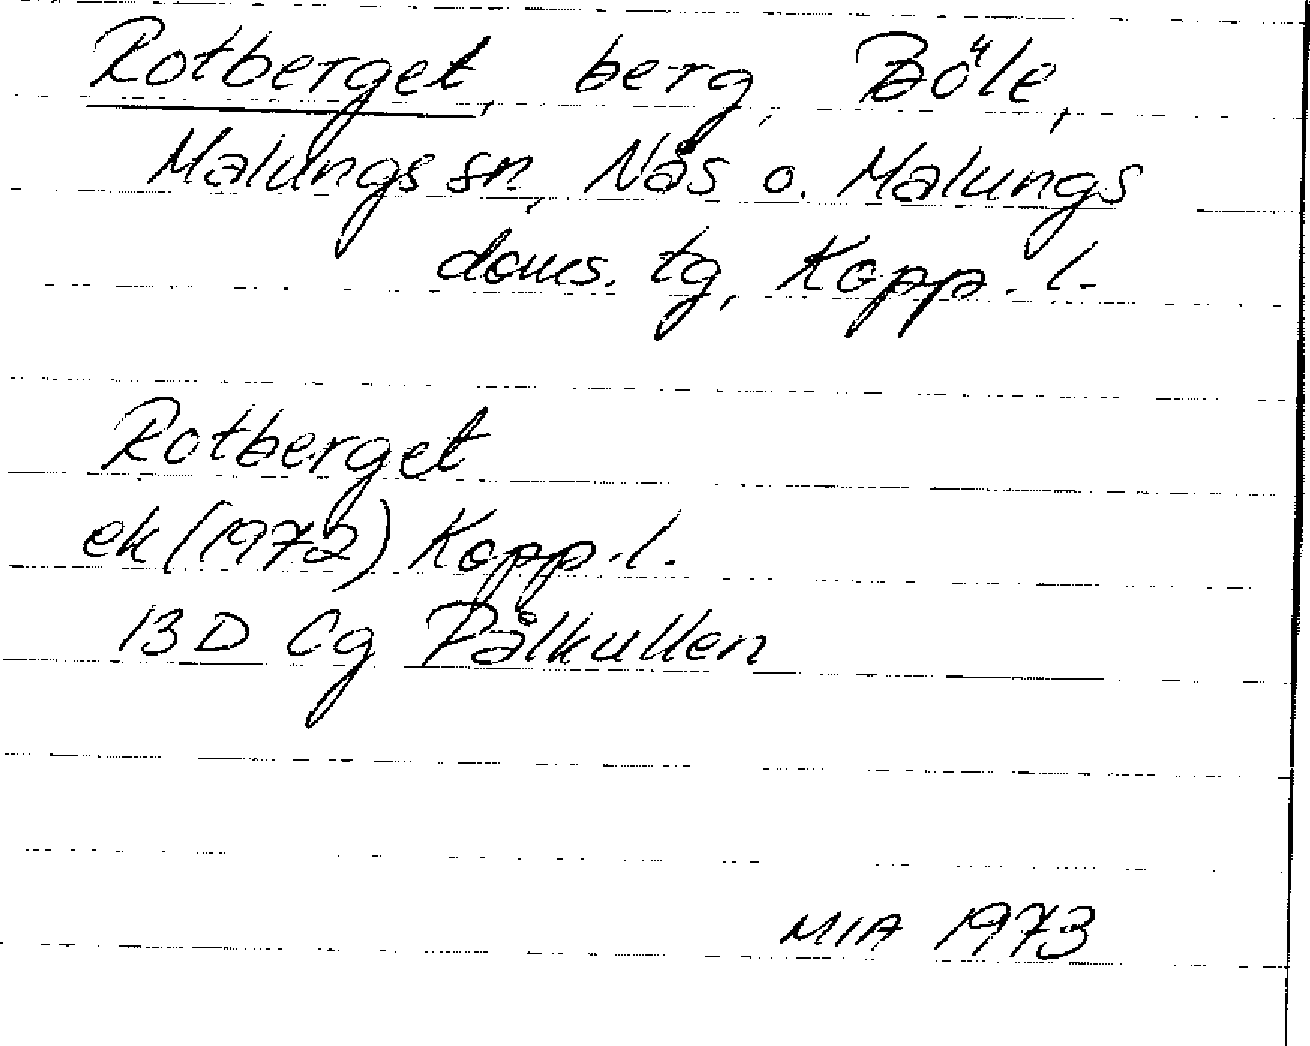 Rotberget, berg, Böle,
Malungs sn, Nås o. Malungs
doms. tg, Kopp. l.
Rotberget
ek (1972) Kopp. l.
13 D Cg Pålkullen
MIA 1973